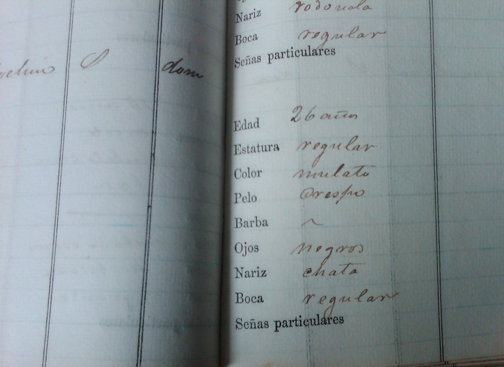 Nariz redonda
Boca regular
Señas particulares
S dom
Edad 26 años
Estatura regular
Color mulato
Pelo Crespo
Barba ~
Ojos negros
Nariz chata
Boca regular
Señas particulares